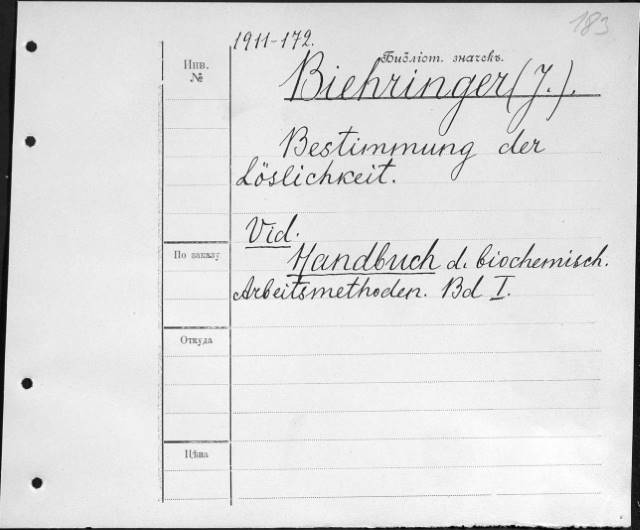 183
1911-172.
Инв.
№
Библіот. значекъ.
Biehringer (J.).
Bestimmung der
Löslichkeit.
Vid.
Handbuch d. biochemisch.
По заказу
Arbeitsmethoden. Bd I.
Откуда
Цѣна